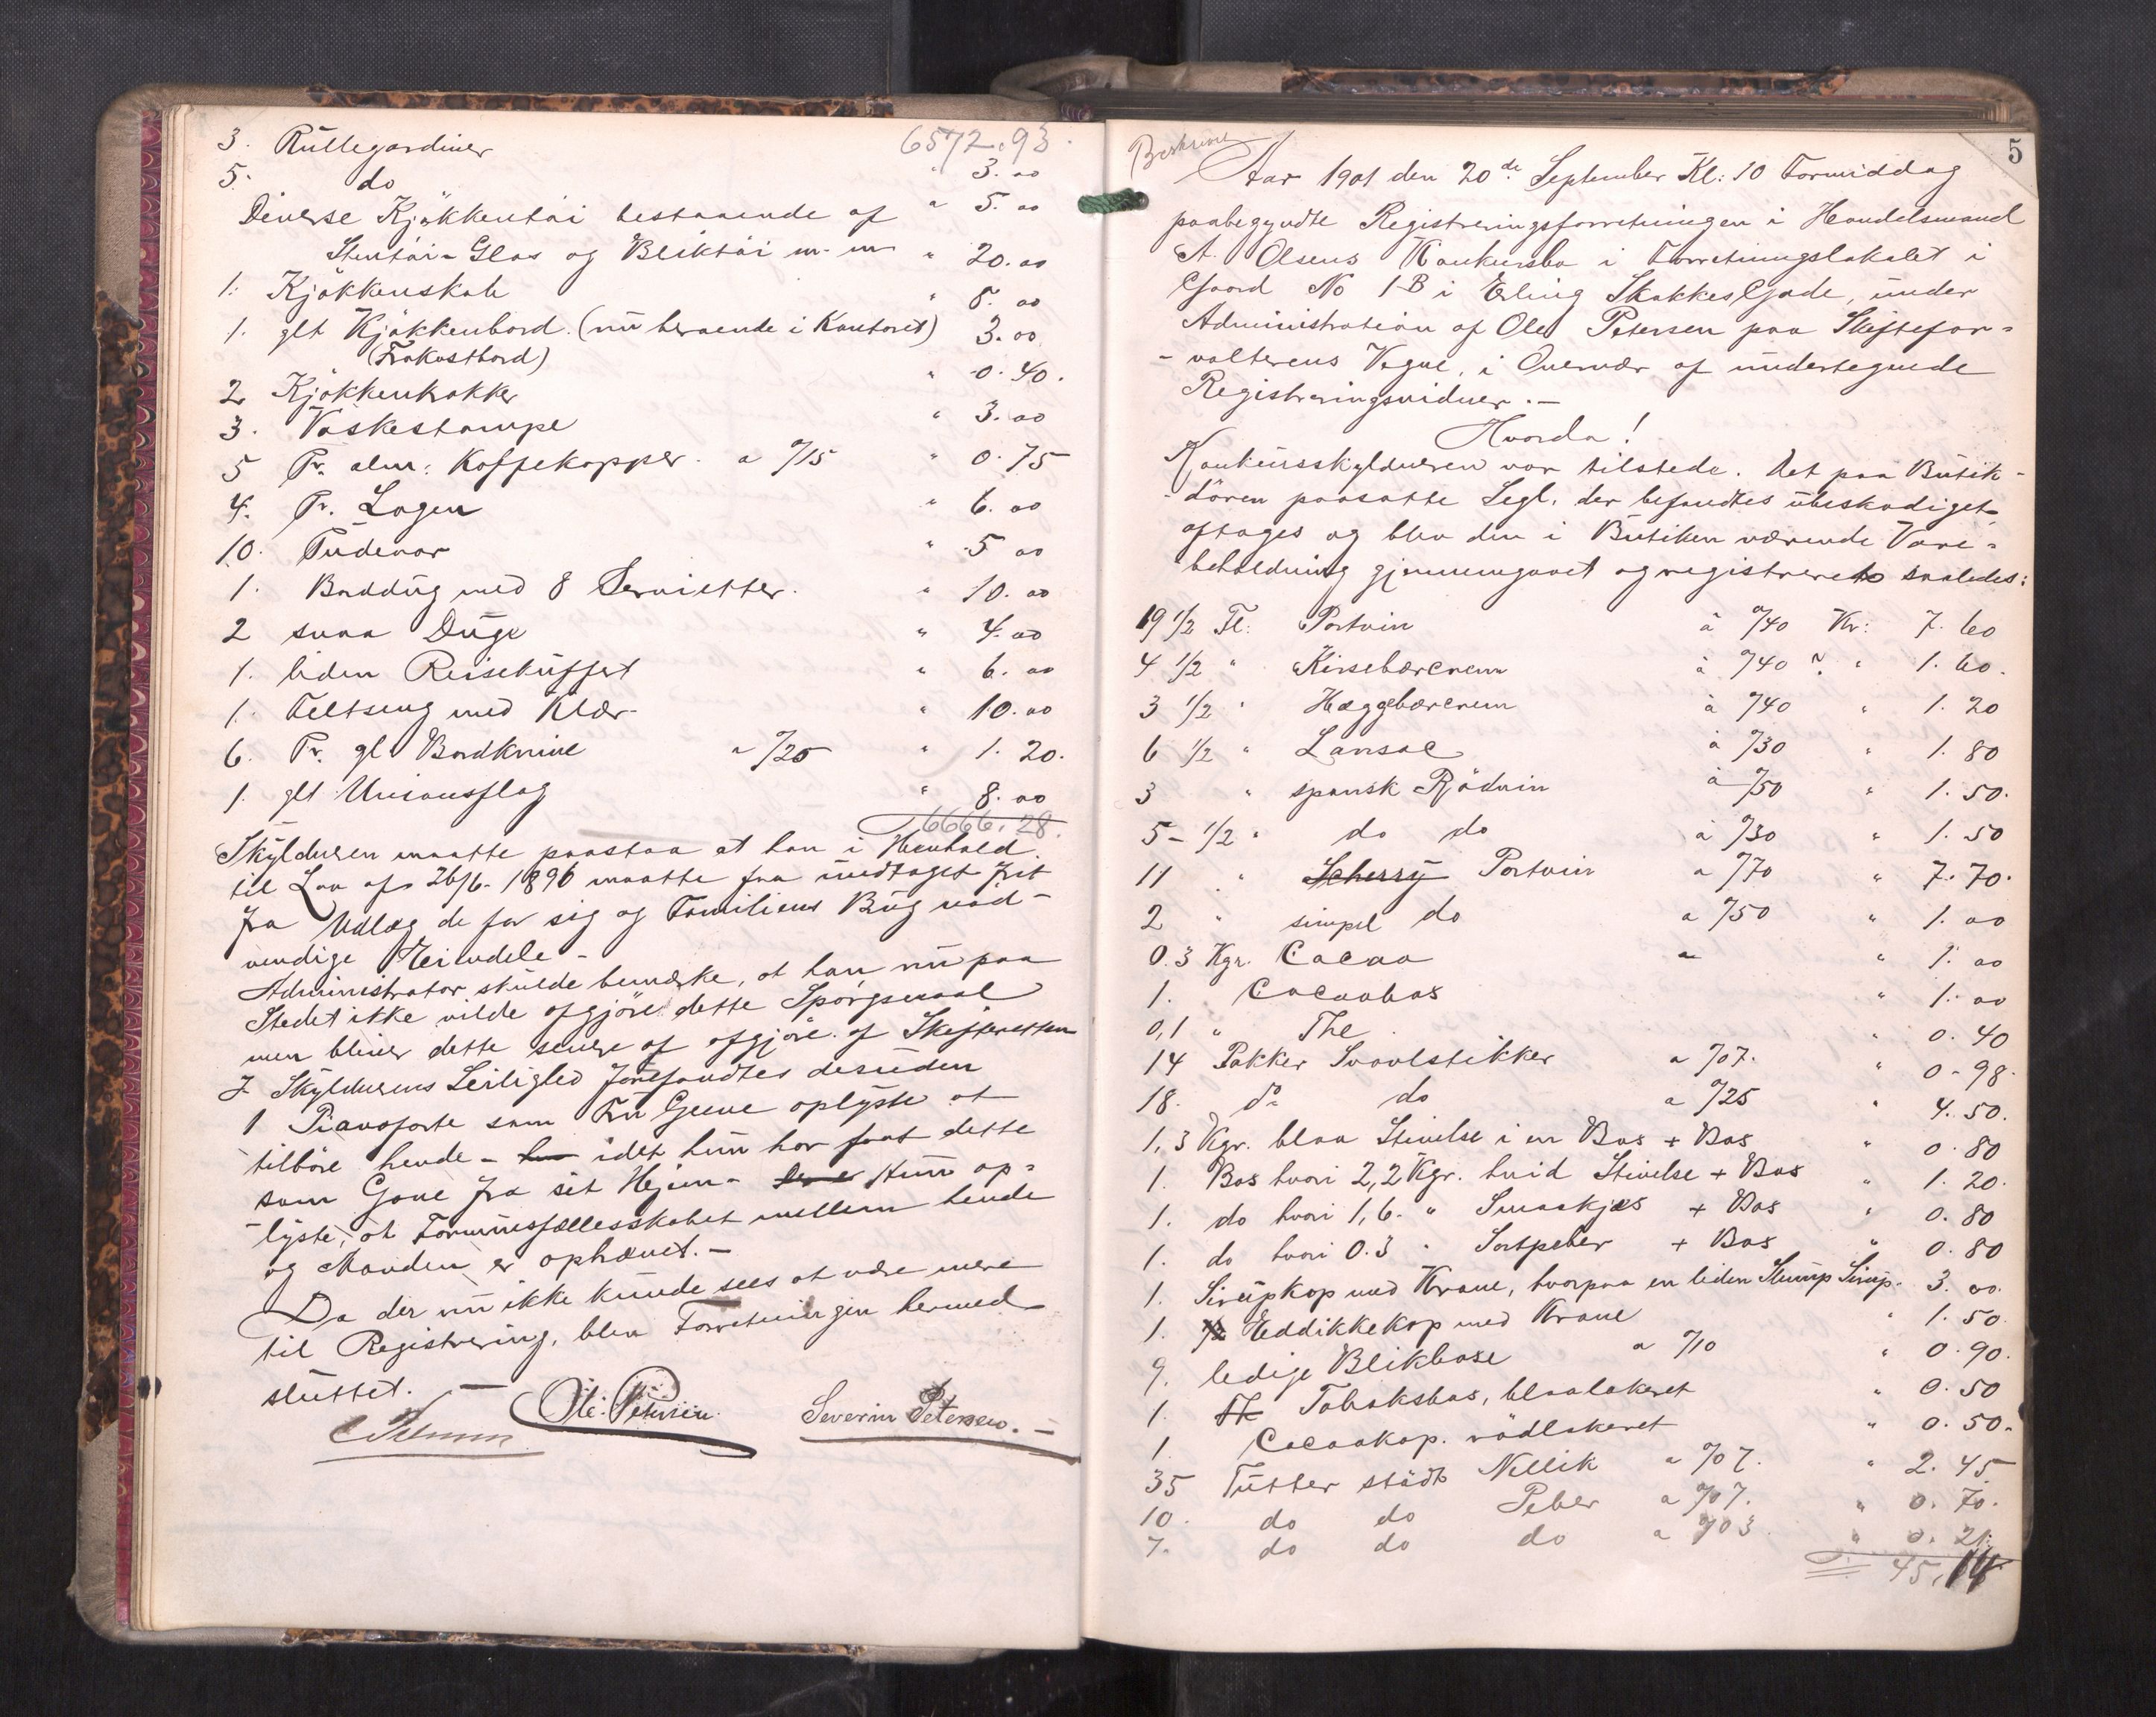 6572.93
3. Rullegardiner " 3.00
5. do " 5.00
Diverse Kjøkkentøi bestaaende af
Stentøi-Glas og Bliktøi m. m " 20.00
1. Kjøkkenskab " 8.00
1. glt Kjøkkenbord. (nu beroende i Kontoret) 3.00
(Frokostbord)
2 Kjøkkenkrakker " 0.40.
3. Vaskestampe " 3.00
5 Pr. alm: Kaffekopper. a %15 " 0.75
4. Pr. Lagen " 6.00
10. Pudevar " 5 00
1. Borddug med 8 Servietter. " 10.00
2 smaa Duge " 4.00
1. liden Reisekuffert " 6.00
1. Feltseng med Klær " 10.00
6. Pr. gl Bordknive a %20 " 1.20.
1. glt Unionsflag " 8.00
6666.28.
Skyldneren maatte paastaa at han i Henhold
til Lov af 26/6-1896 maatte faa undtaget frit
fra Udlæg de for sig og Familiens Brug nød-
vendige Eiendele -
Administrator skulde bemærke, at han nu paa
Stedet ikke vilde afgjøre dette Spørgsmaal
men bliver dette senere at afgjøre af Skifteretten
I Skyldnerens Leilighed forefandtes desuden
1 Pianoforte som Fru Greve oplyste at
tilhøre hende - idet hun har faat dette
som Gave fra sit Hjem - Hun op-
lyste, at Formuesfællesskabet mellem hende
og Manden er ophævet. -
Da der nu ikke kunde sees at være mere
til Registrering, blev Forretningen hermed
sluttet. -
Ole Petersen. Severin Petersen. -
Beskreven
5
Aar 1901 den 20de September Kl: 10 Formiddag
paabegyndte Registreringsforretningen i Handelsmand
A. Olsens Konkursbo i Forretningslokalet i
Gaard No 1B i Erling SkakkesGade, under
Administration af Ole Petersen paa Skiftefor-
-valterens Vegne, i Overvær af undertegnede
Registreringsvidner. -
Hvorda!
Konkursskyldneren var tilstede. Det paa Butik-
-døren paasatte Segl, der befandtes ubeskadiget
aftages og blev den i Butiken værende Vare-
beholdning gjennemgaaet og registreret saaledes:
19 1/2 Fl: Portvin à %40 Kr: 7.60
4 1/2 " Kirsebærcrem à %40 " 1.60.
3 1/2 " Hæggebærcrem à %40 " 1.20
6 1/2 " Lansac à %30 " 1.80
3 " spansk Rødvin à %50 " 1.50.
5- 1/2 " do do à %30 " 1.50
11 " Scherry Portvin a %70 " 7.70.
2 " simpel do a %50 " 1.00
0.3 Kgr. Cacao a " 1.00
1. Cacaobos " 1.00
0,1 " The " 0.40
14 Pakker Svovlstikker a %07. " 0-98
18. do do a %25 " 4.50.
1,3 Kgr. blaa Stivelse i en Bos + Bos " 0.80
1. Bos hvori 2,2 Kgr. hvid Stivelse + Bos " 1.20.
1. do hvori 1,6. " Smaakjæs + Bos " 0.80
1. do hvori 0.3 " Sortpeber + Bos " 0.80
1. Sirupkop med Krane, hvorpaa en liden Slump Sirup. 3.00.
1. Eddikkekop med Krane " 1.50
9. ledige Blikbose a %10 " 0.90.
1. Tobaksbos, blaalakeret " 0.50
1. Cacaokop. rødlakeret " 0.50.
35 Tutter stødt Nellik a %07. " 2.45
10. do do Peber a %07. " 0.70.
7. do do do a %03. " 0.21.
45,14